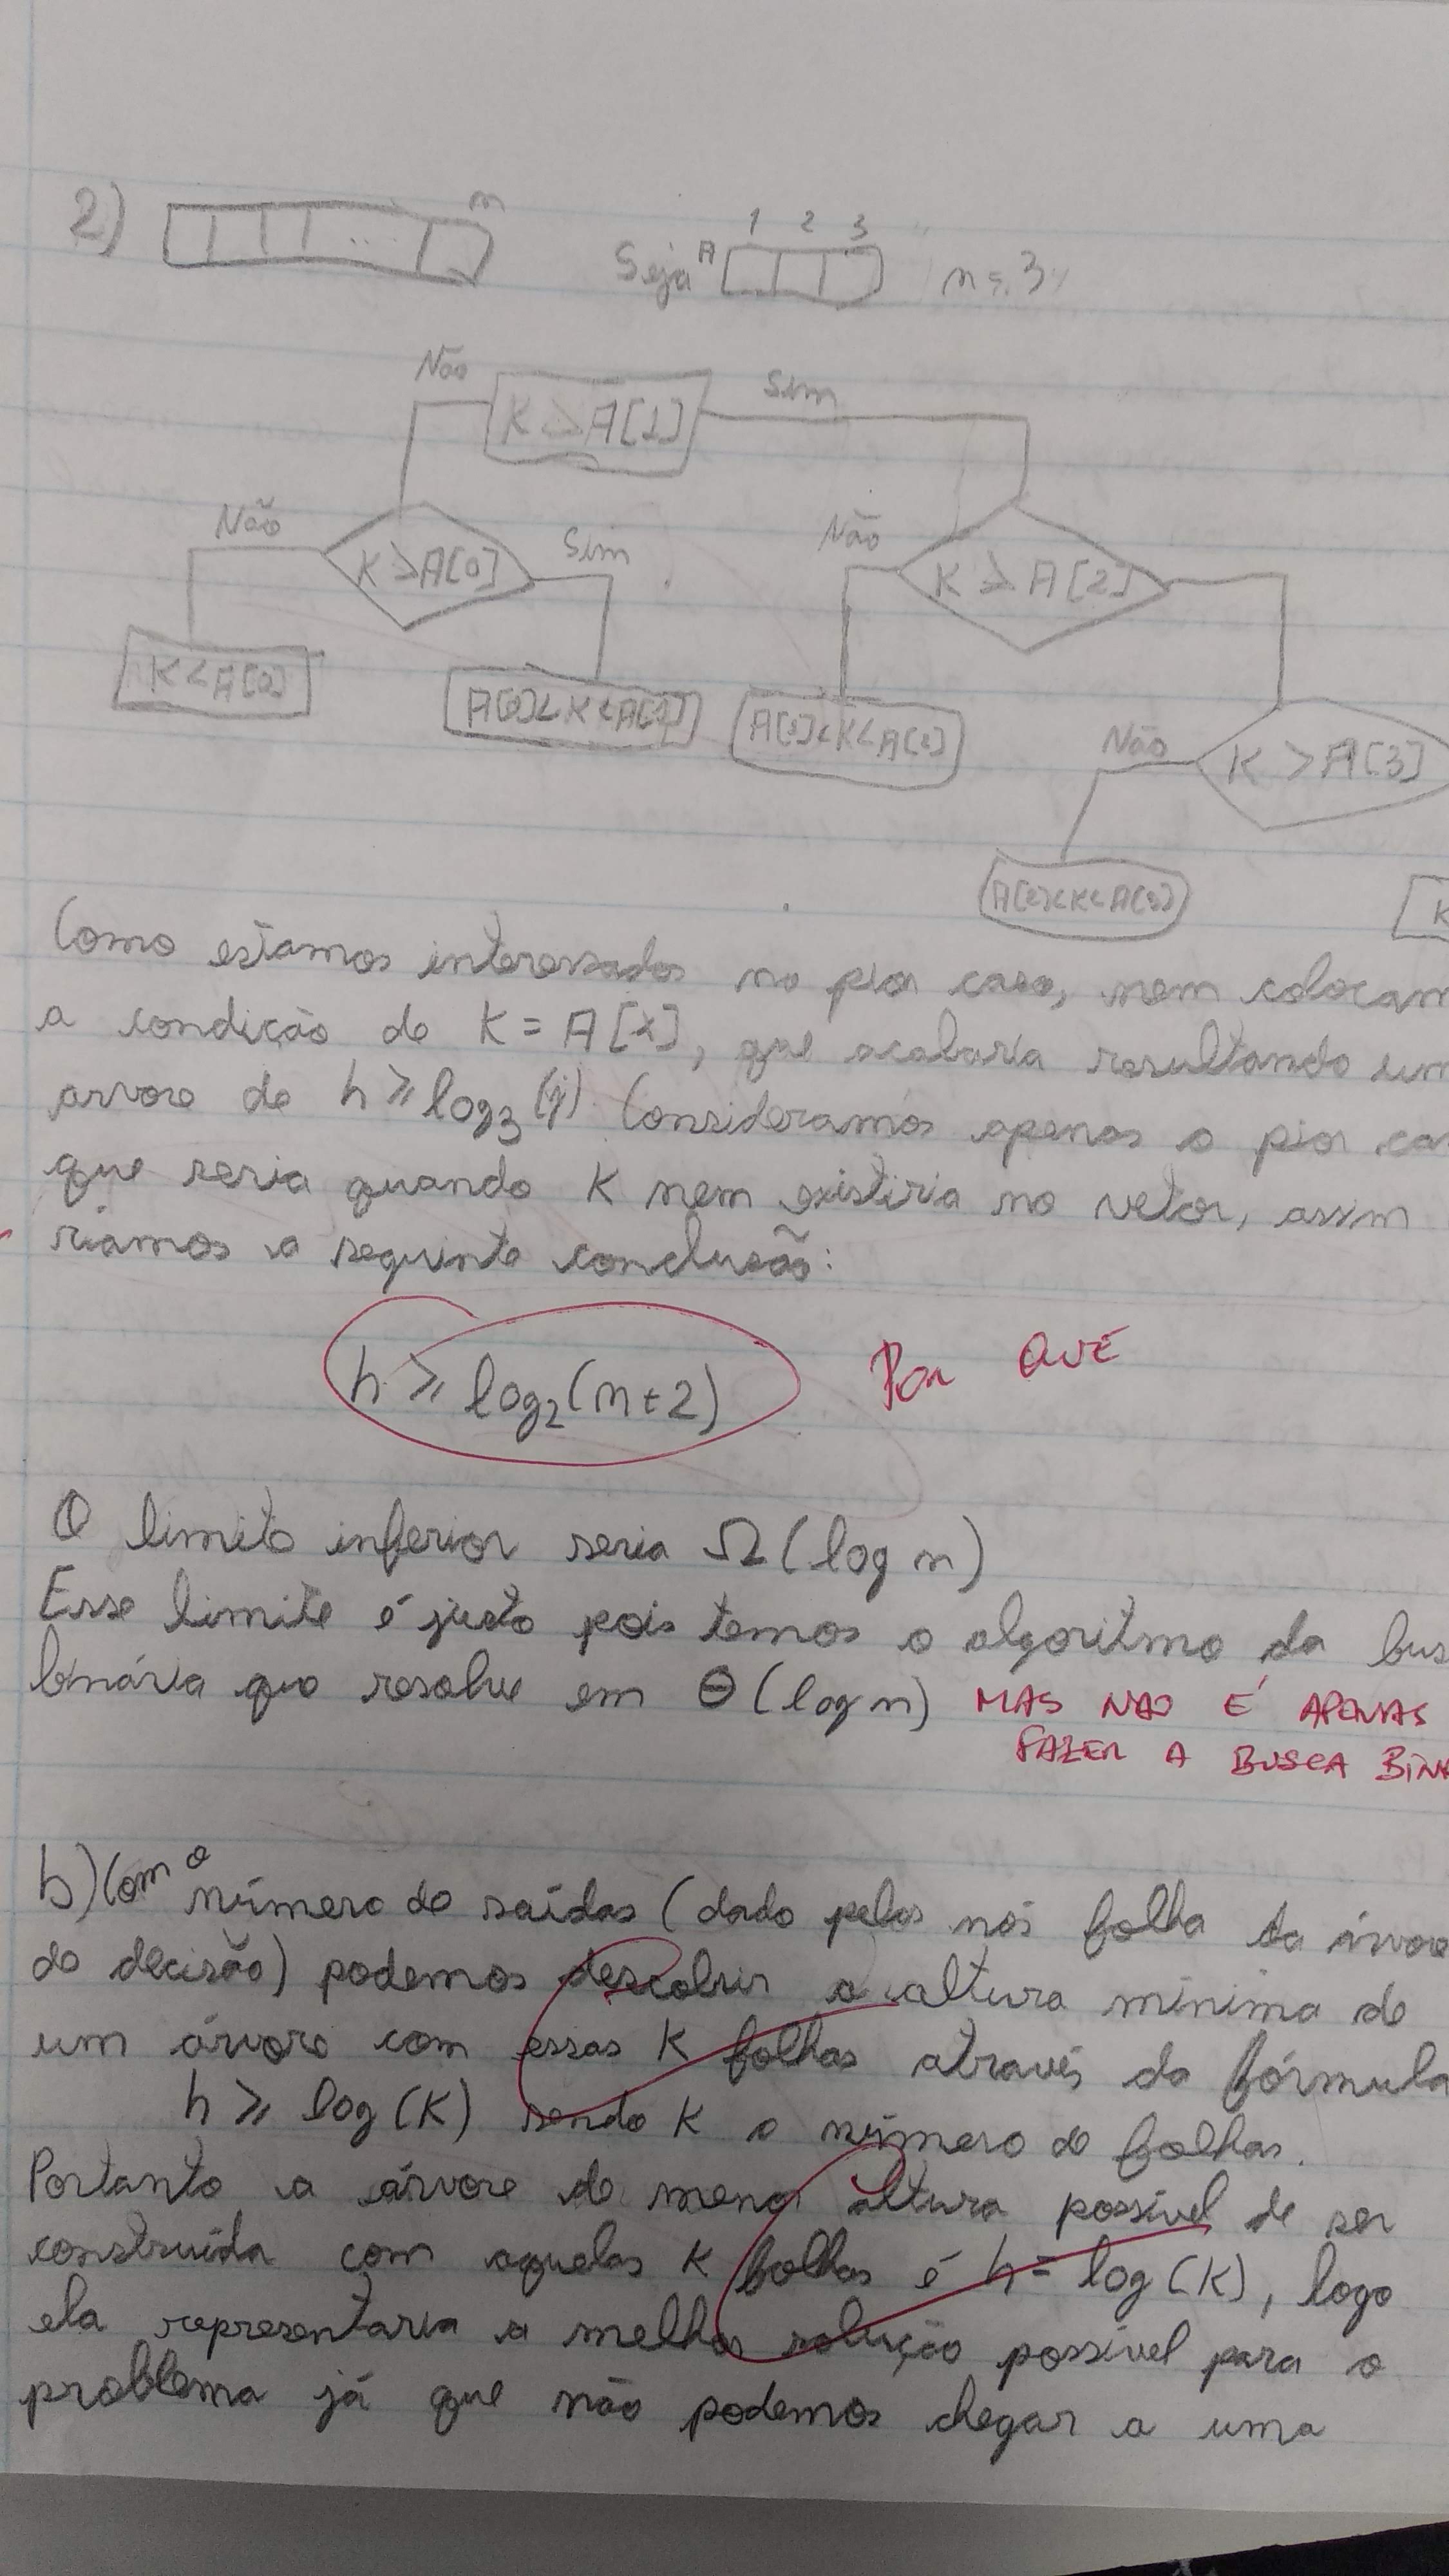 2) n
Seja A 1 2 3 n = 3
Não K ≥ A[1] Sim
Não K ≥ A[0] Sim Não K ≥ A[2]
K < A[0] A[0] < K < A[1] A[1] < K < A[2] Não K > A[3]
A[2] < K < A[3] K
Como estamos interessados no pior caso, nem colocam
a condição de K = A[x], que acabaria resultando um
arvore de h ≥ log₃(j) Consideramos apenas o pior ca
que seria quando K nem existiria no vetor, assim
riamos a seguinte conclusão:
h ≥ log₂(n+2) POR QUE
O limite inferior seria Ω(log n)
Esse limite é justo pois temos o algoritmo da bus
binária que resolve em Θ(log n) MAS NÃO É APENAS
FAZER A BUSCA BINA
b) Com o número de saídas (dado pelos nós folha da árvore
de decisão) podemos descobrir a altura mínima de
um árvore com essas K folhas através da fórmula
h ≥ log(K) sendo K o número de folhas.
Portanto a árvore de menor altura possível de ser
construída com aquelas K folhas é h = log(K), logo
ela representaria a melhor solução possível para o
problema já que não podemos chegar a uma